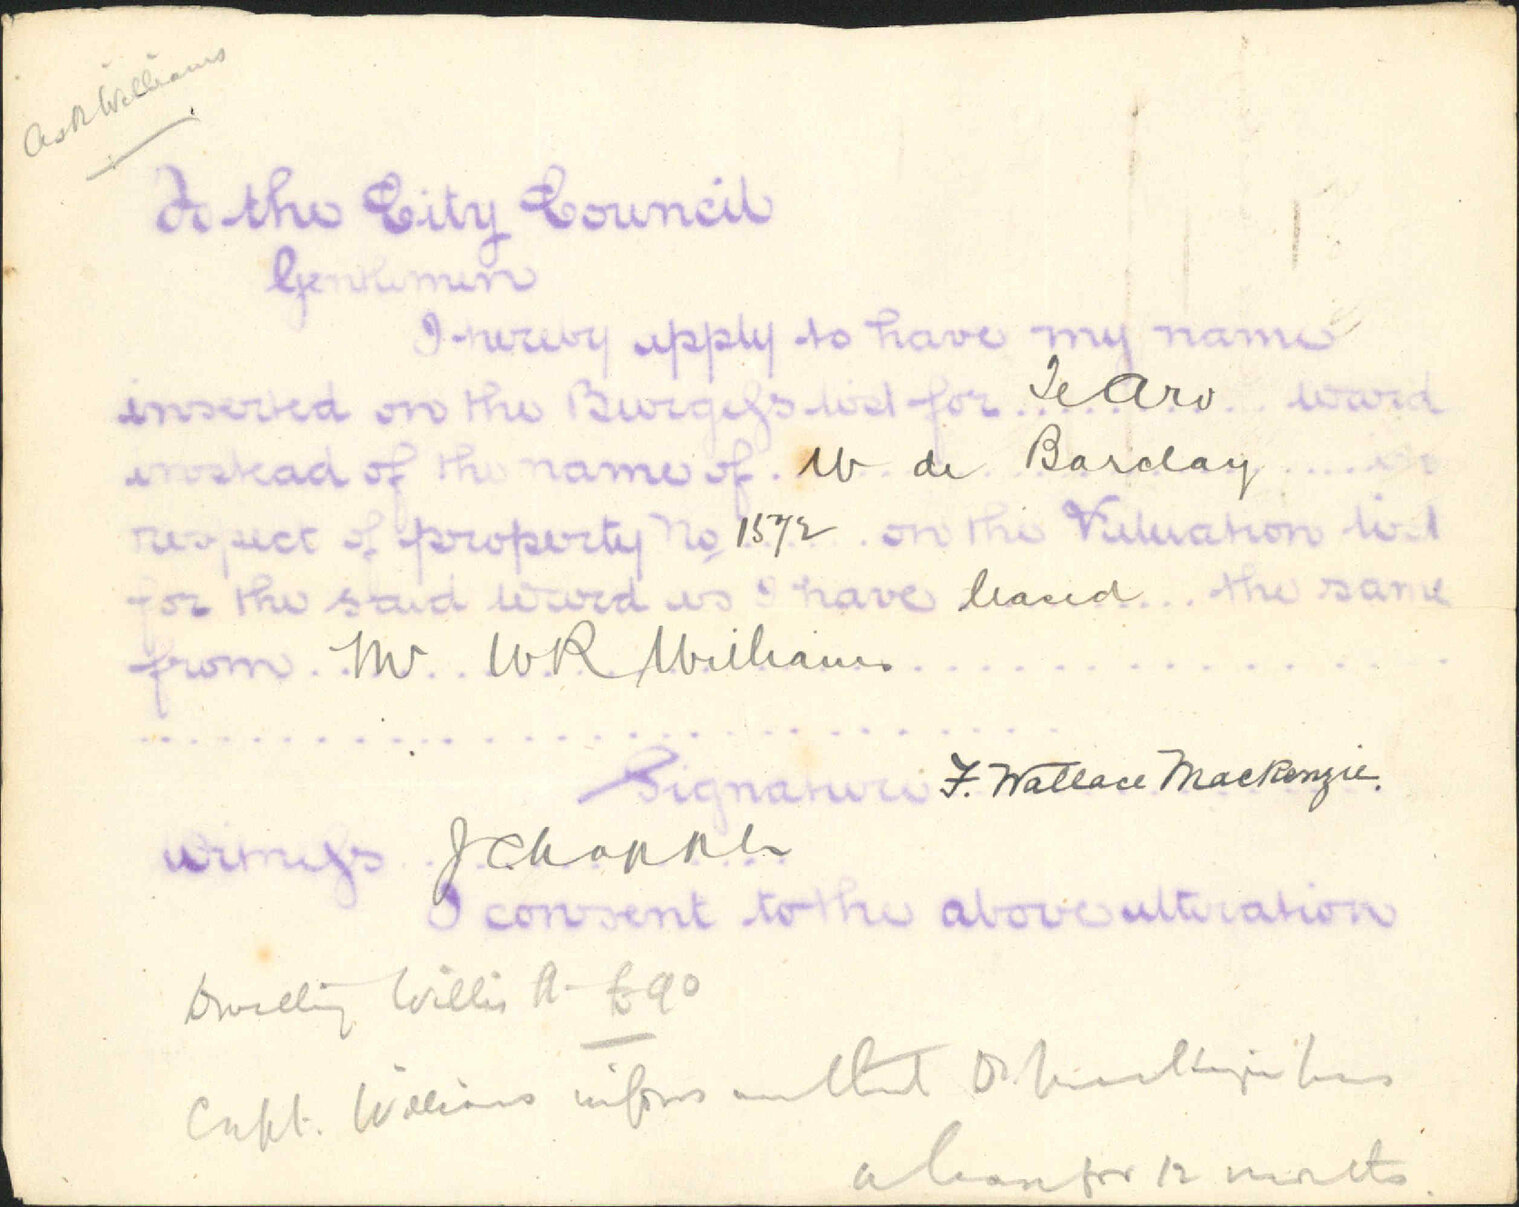 Ask Williams
To the City Council
Gentlemen
I hereby apply to have my name
inserted on the Burgess list for Te Aro ward
instead of the name of W de Barclay in
respect of property No 1572 on the Valuation list
for the said ward as I have leased the same
from Mr W R Williams
Signature F. Wallace Mackenzie.
Witness J Chapple
I consent to the above alteration
Dwelling Willis St £90
Capt. Williams informs me that Dr Mackenzie has
a lease for 12 months.